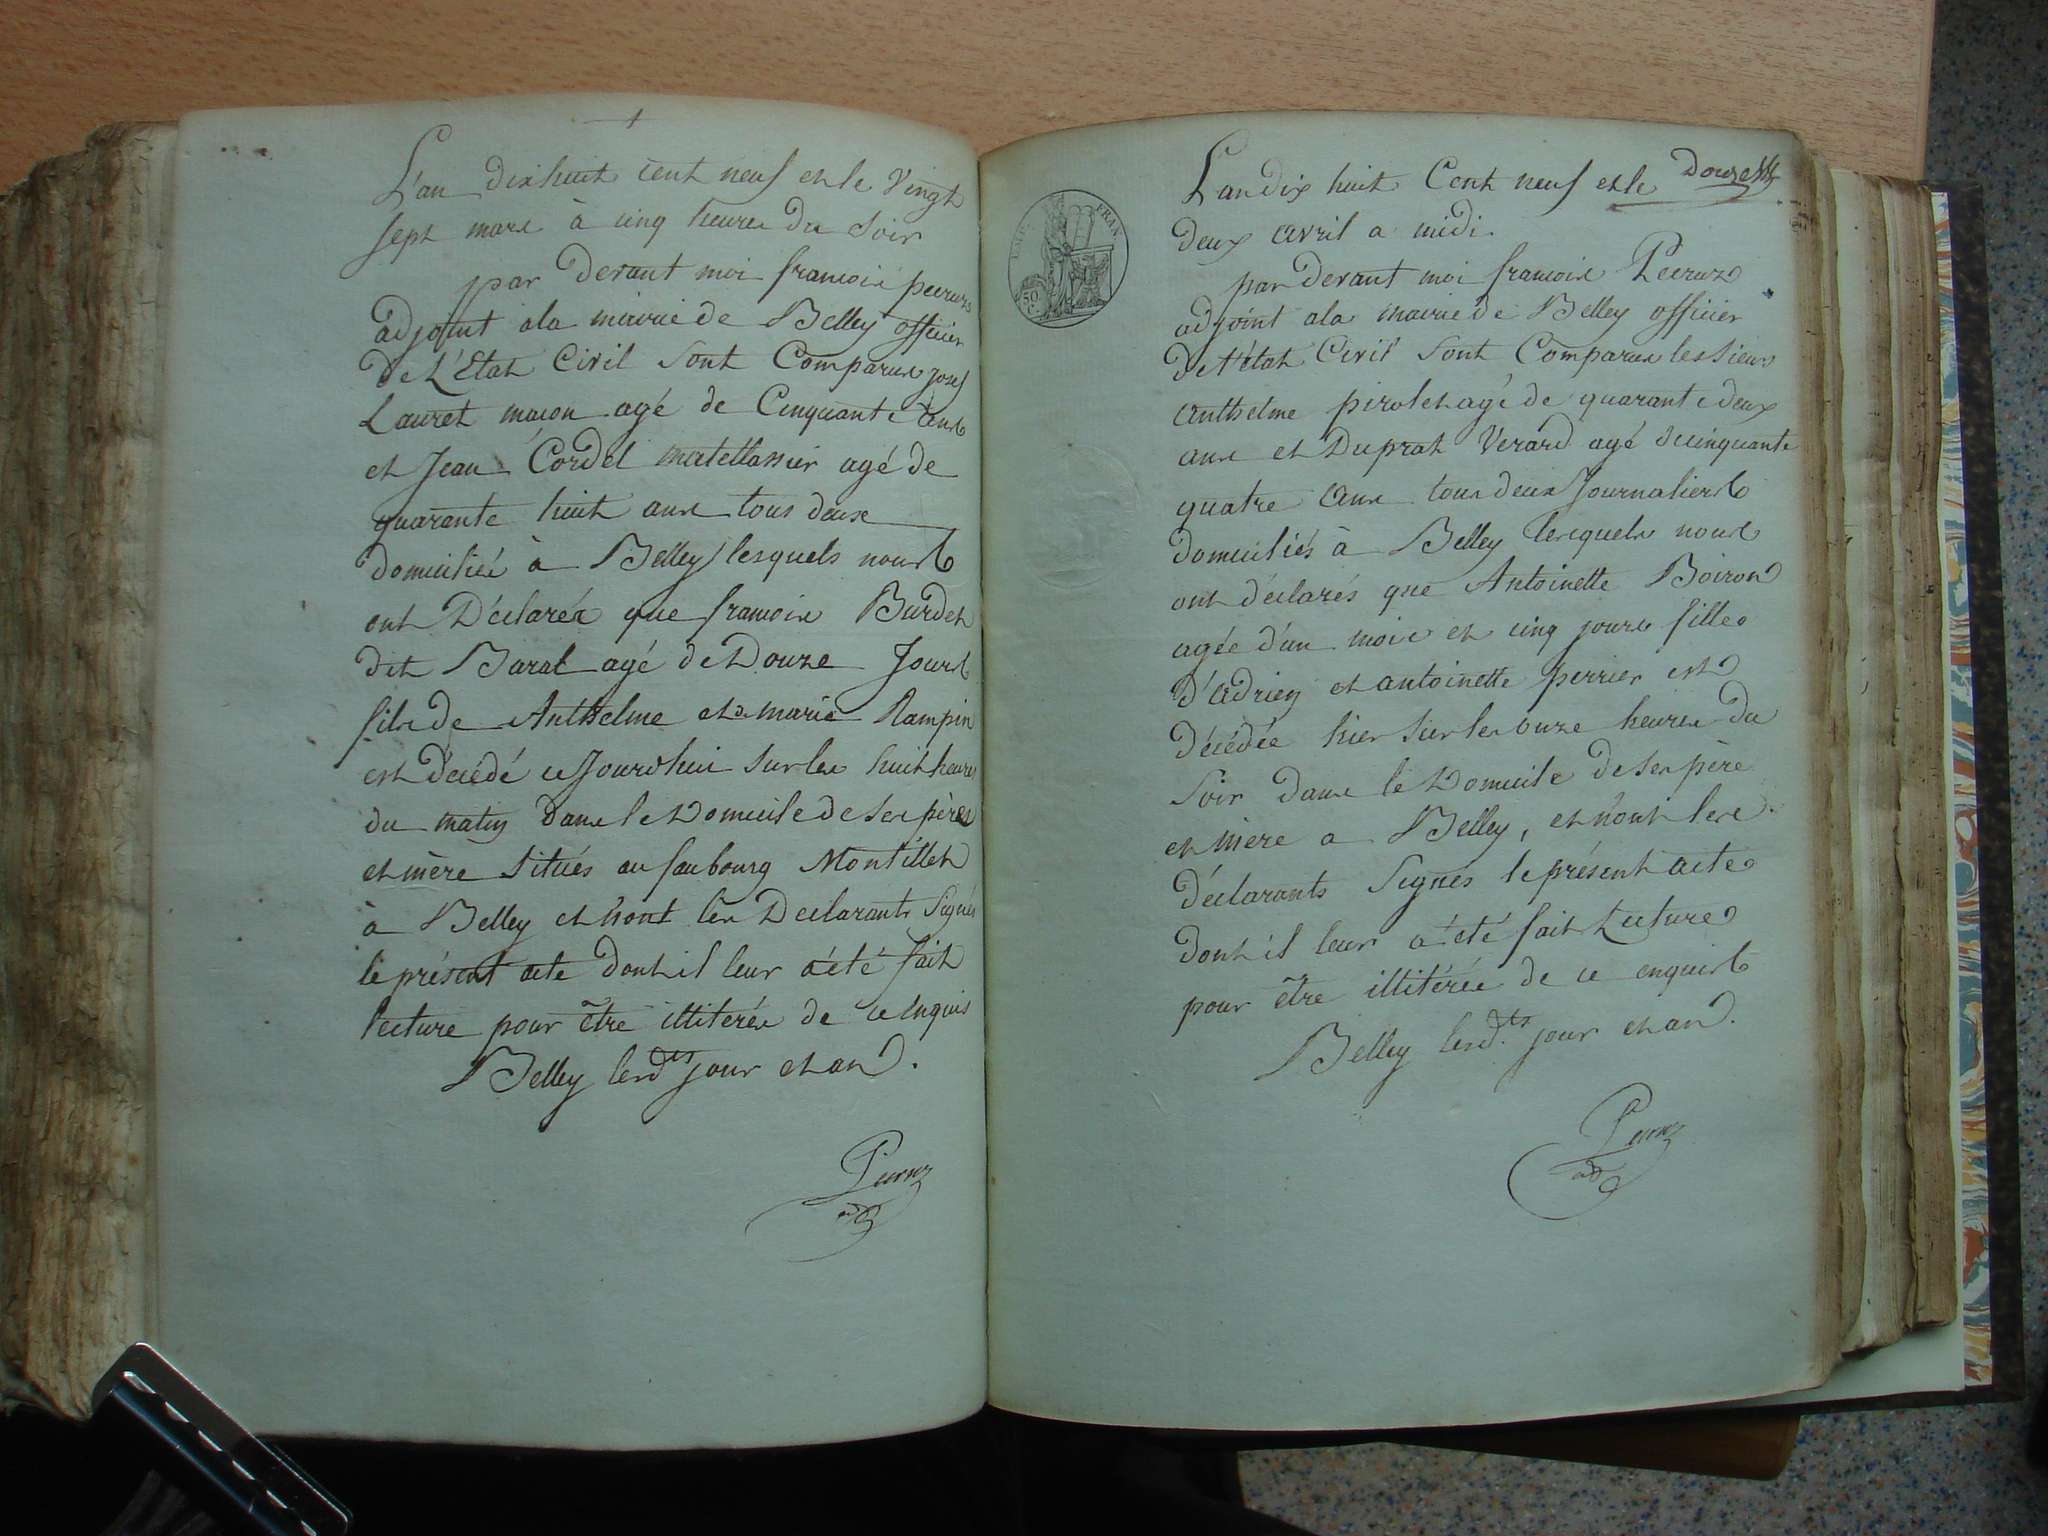 L'an dix huit cent neuf et le Vingt
sept mars à cinq heures du Soir
par devant moi francois peeruz
adjoint a la mairie de Belley officier
de L'Etat Civil Sont Comparus josef
Lauret macon agé de Cinquante ans
et Jean Cordel matellassier agé de
quarante huit ans tous deux
domiciliés à Belley lesquels nous
ont Déclarés que francois Burdet
dit Baral agé de Douze Jours
fils de Anthelme et de marie Rampin
est décédé ce Jourdhui sur les huit heures
du matin dans le Domicile de Ses pères
et mère Situés au faubourg Montillet
à Belley et n'ont les Declarants Signés
le présent acte dont il leur a été fait
lecture pour être illitérés de ce Enquis
Belley lesd.ts jour et an.
Peeruz
adj
L'an dix huit Cent neuf et le Douze
deux avril a midi.
par devant moi francois Peeruz
adjoint a la mairie de Belley officier
de l'état Civil Sont Comparus les Sieurs
anthelme pirolet agé de quarante deux
ans et Duprat Verard agé de cinquante
quatre ans tous deux Journaliers
domiciliés à Belley lesquels nous
ont déclarés que Antoinette Boiron
agée d'un mois et cinq jours fille
d'adrien et antoinette perrier est
décédée hier sur les onze heures du
Soir dans le Domicile de Ses père
et mère a Belley, et n'ont les
déclarants Signés le présent acte
dont il leur a été fait Lecture
pour être illitérés de ce enquis
Belley lesd.ts jour et an.
Peeruz
adj
EMP. FRAN.
50
C.